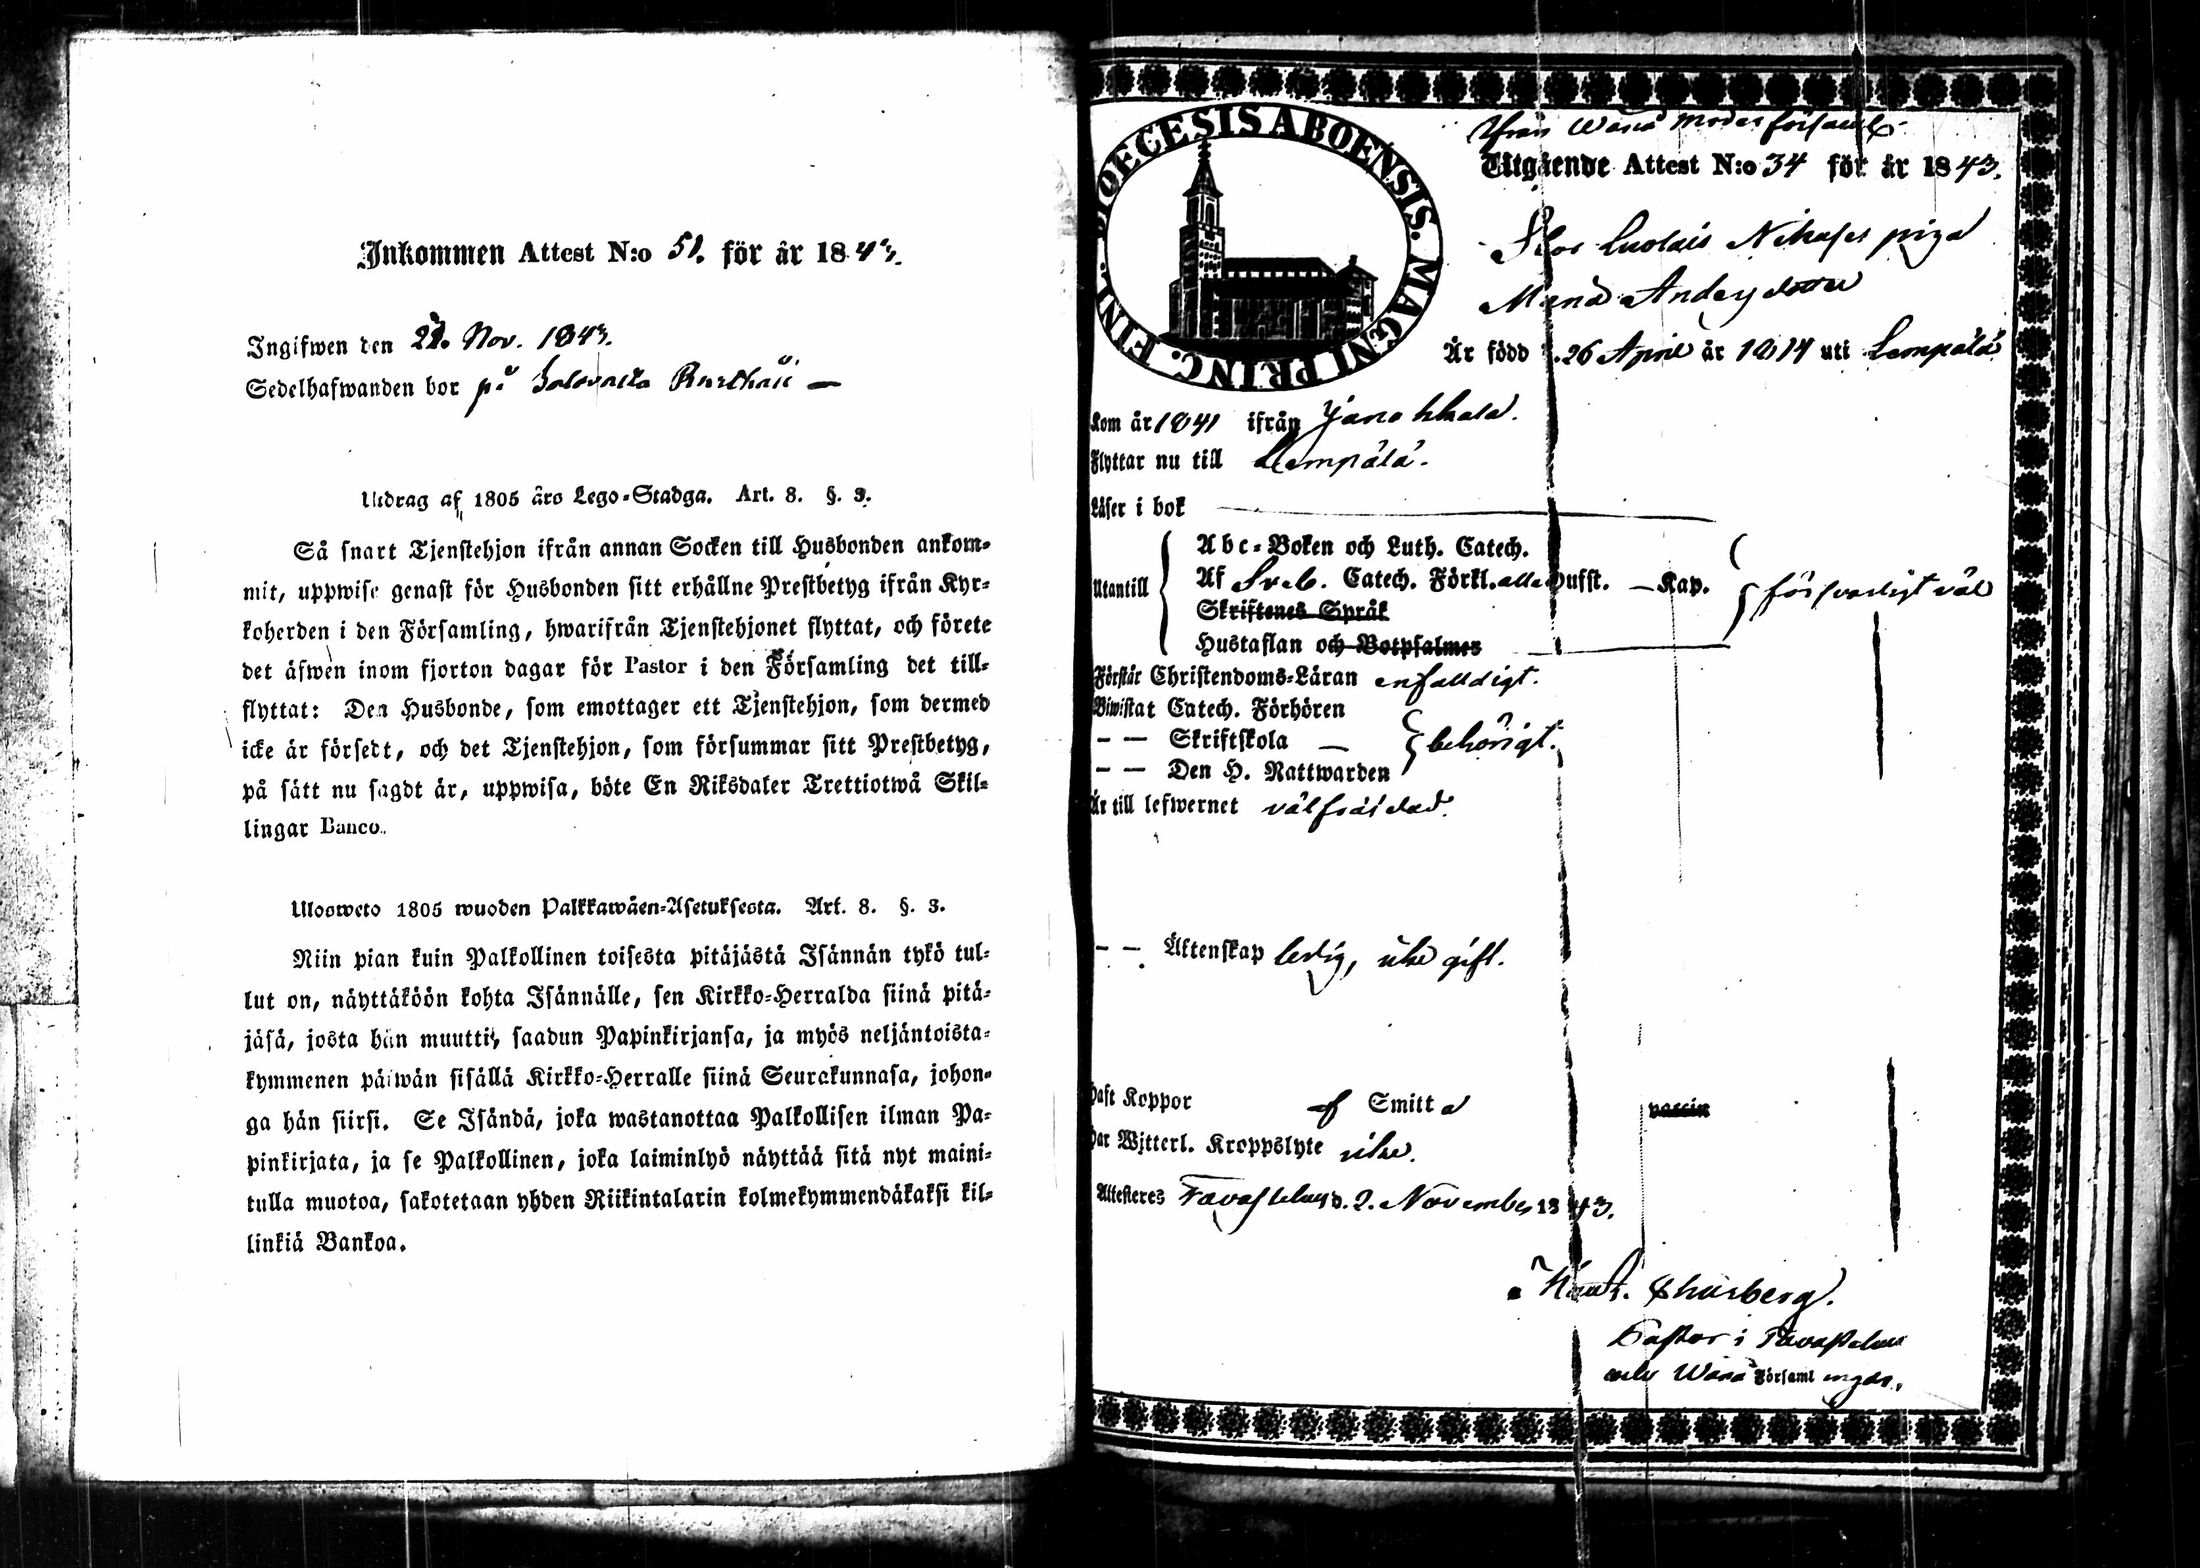 Inkommen Attest N:o 51. för år 1843.
Ingifwen den 22. Nov. 1843.
Sedelhafwanden bor på
Utdrag af 1805 års Lego-Stadga. Art. 8. §. 3.
Så snart Tjenstehjon ifrån annan Socken till Husbonden ankom-
mit, uppwise genast för Husbonden sitt erhållne Prestbetyg ifrån Kyr-
koherden i den Församling, hwarifrån Tjenstehjonet flyttat, och förete
det äfwen inom fjorton dagar för Pastor i den Församling det till-
flyttat: Den Husbonde, som emottager ett Tjenstehjon, som dermed
icke är försedt, och det Tjenstehjon, som försummar sitt Prestbetyg,
på sätt nu sagdt är, uppwisa, böte En Riksdaler Trettiotwå Skil-
lingar Banco.
Ulosweto 1805 wuoden Palkkawäen-Asetuksesta. Art. 8. §. 3.
Niin pian kuin Palkollinen toisesta pitäjästä Isännän tykö tul-
lut on, näyttäköön kohta Isännälle, sen Kirkko-Herralda siinä pitä-
jäsä, josta hän muutti, saadun Papinkirjansa, ja myös neljäntoista-
kymmenen päiwän sisällä Kirkko-Herralle siinä Seurakunnasa, johon-
ga hän siirsi. Se Isändä, joka wastanottaa Palkollisen ilman Pa-
pinkirjata, ja se Palkollinen, joka laiminlyö näyttää sitä nyt maini-
tulla muotoa, sakotetaan yhden Riikintalarin kolmekymmendäkaksi kil-
linkiä Bankoa.
DIOECESIS ABOENSIS. MAGNI PRINC. FINL.
Ifrån Wånå moderförsaml.
Utgående Attest N:o 34 för år 1843.
Nikases piga
Maria Andersdotter
Är född d. 26 April år 1814 uti Lempälä
Kom år 1841 ifrån Janakkala.
Flyttar nu till Lempälä.
Läser i bok
Utantill
Abc-Boken och Luth. Catech.
Af Sveb. Catech. Förkl. alla Hufst. — Kap.
Skriftenes Språk
Hustaflan och Botpsalmes
försvarligt väl
Förstår Christendoms-Läran enfaldigt.
Biwistat Catech. Förhören
— — Skriftskola —
— — Den H. Nattwarden
behörigt.
Är till lefwernet välfräjdad.
— — Äktenskap ledig, icke gift.
Haft Koppor af Smitta vaccin
Har Wjtterl. Kroppslyte icke.
Attesteres Tavastehus d. 2. November 1843.
Henr. Ahlberg.
Pastor i Tavastehus
och Wånå Församlingar.